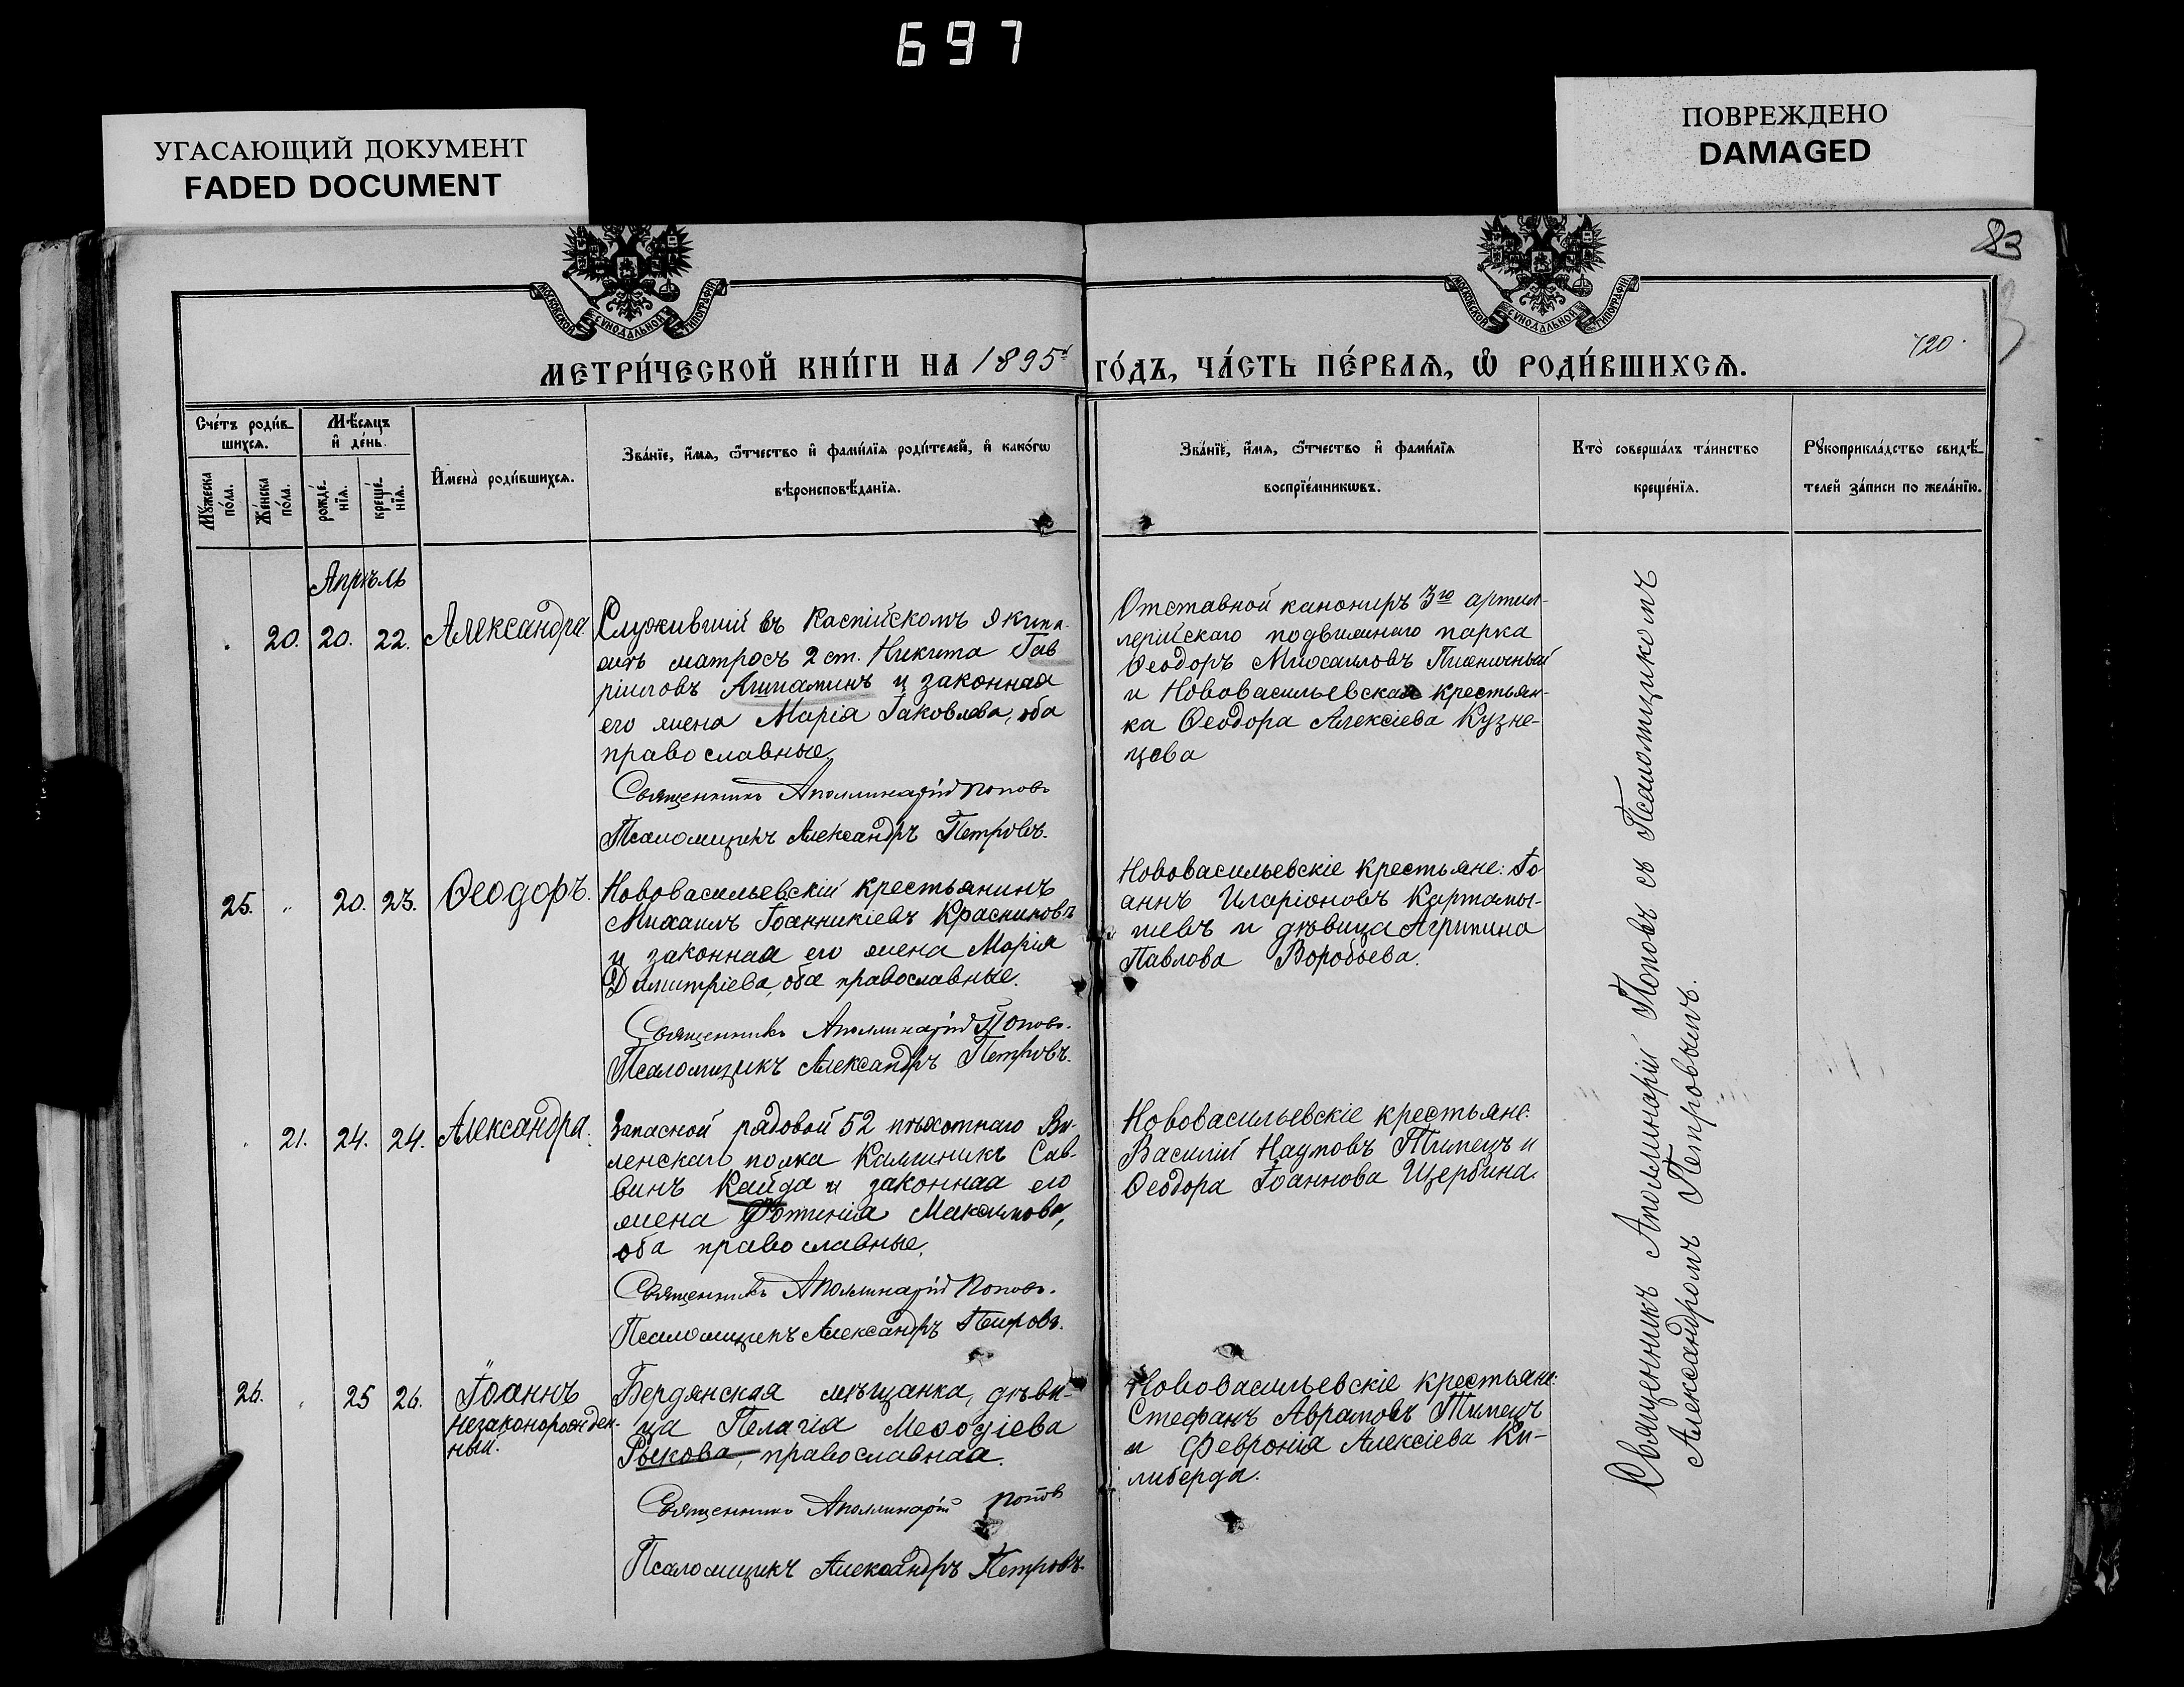 697
УГАСАЮЩИЙ ДОКУМЕНТ
FADED DOCUMENT
ПОВРЕЖДЕНО
DAMAGED
83
МОСКОВСКОЙ СѴНОДАЛЬНОЙ ТИПОГРАФІИ
МОСКОВСКОЙ СѴНОДАЛЬНОЙ ТИПОГРАФІИ
120.
МЕТРИ́ЧЕСКОЙ КНИ́ГИ НА 1895й ГО́ДЪ, ЧА́СТЬ ПЕ́РВАѦ, Ѡ҆ РОДИ́ВШИХСѦ.
Сче́тъ роди́в-
шихсѧ.
Мѣ́сѧцъ
и҆ де́нь.
Мꙋ́жеска
по́ла.
Же́нска
по́ла.
рожде́-
нїѧ.
креще́-
нїѧ.
И҆мена̀ роди́вшихсѧ.
Зва́нїе, и҆́мѧ, ѻ҆́тчество и҆ фами́лїѧ роди́телей, и҆ како́гѡ
вѣроисповѣ́данїѧ.
Зва́нїе, и҆́мѧ, ѻ҆́тчество и҆ фами́лїѧ
воспрїе́мникѡвъ.
Кто̀ соверша́лъ та́инство
креще́нїѧ.
Рꙋкоприкла́дство свидѣ́-
телей за́писи по жела́нїю.
Апрѣль
20. 20. 22. Александра.
Служившій въ Каспійскомъ Экипа-
жѣ матросъ 2 ст. Никита Гав
ріиловъ и законная
его жена Марія Іаковлева, оба
православные.
Священникъ Аполлинарій Поповъ
Псаломщикъ Александръ Петровъ.
Отставной канониръ 3го артил-
лерійскаго подвижнаго парка
Ѳеодоръ Михаиловъ Пшеничный
и Нововасильевская крестьян-
ка Ѳеодора Алексіева Кузне-
цова
25. " 20. 23. Ѳеодоръ.
Нововасильевскій крестьянинъ
Михаилъ Іоанникіевъ Красниковъ
и законная его жена Марія
Димитріева, оба православные.
Священникъ Аполлинарій Поповъ.
Псаломщикъ Александръ Петровъ.
Нововасильевскіе крестьяне: Іо
аннъ Иларіоновъ Картамы-
шевъ и дѣвица Агрипина
Павлова Воробьева.
" 21. 24. 24. Александра.
Запасной рядовой 52 пѣхотнаго Ви-
ленскаго полка Каллиникъ Сав-
винъ Кайда и законная его
жена Фотинія Максимова,
оба православные.
Священникъ Аполлинарій Поповъ.
Псаломщикъ Александръ Петровъ.
Нововасильевскіе крестьяне:
Василій Наумовъ Тимецъ и
Ѳеодора Іоаннова Щербина.
26. " 25 26. Іоаннъ
незаконорожден-
ный.
Бердянская мѣщанка, дѣви-
ца Пелагія Меѳодіева
Рыкова, православная.
Священникъ Аполлинарій Поповъ
Псаломщикъ Александръ Петровъ.
Нововасильевскіе крестьяне:
Стефанъ Аврамовъ Тимецъ
и Февронія Алексіева Ки-
либерда.
Священникъ Аполлинарій Поповъ съ Псаломщикомъ
Александромъ Петровымъ.